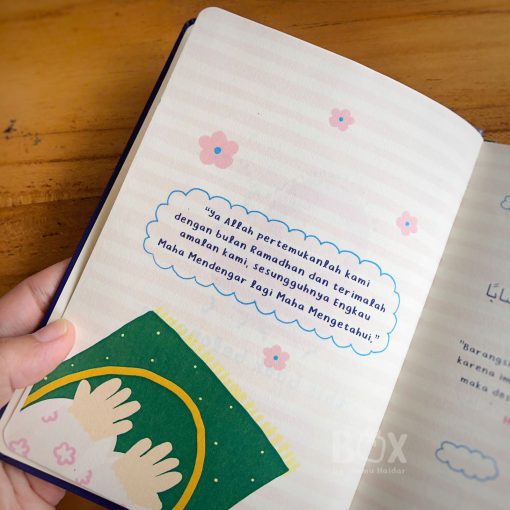 "Ya Allah pertemukanlah kami
dengan bulan Ramadhan dan terimalah
amalan kami, sesungguhnya Engkau
Maha Mendengar lagi Maha Mengetahui."
"Barangs
karena im
maka dos
BOX